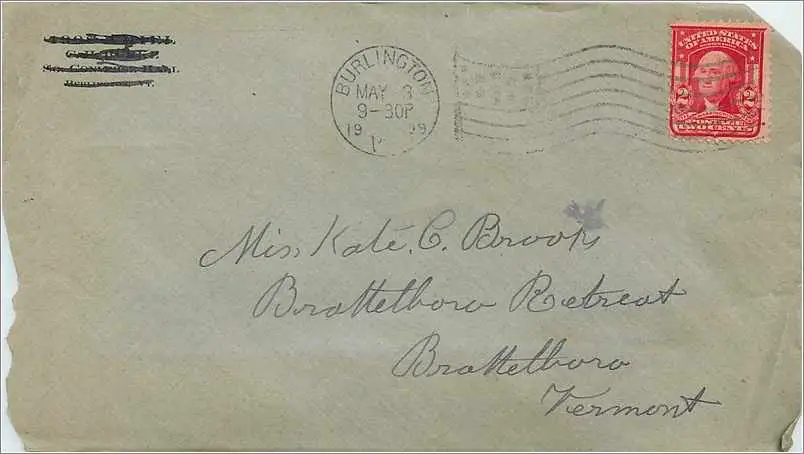 CONVERSE HALL
BURLINGTON
MAY 3
9-30P
19 09
UNITED STATES
OF AMERICA
2 2
POSTAGE
TWO CENTS
Miss Kate. C. Brooks
Brattelboro Retreat
Brattelboro
Vermont